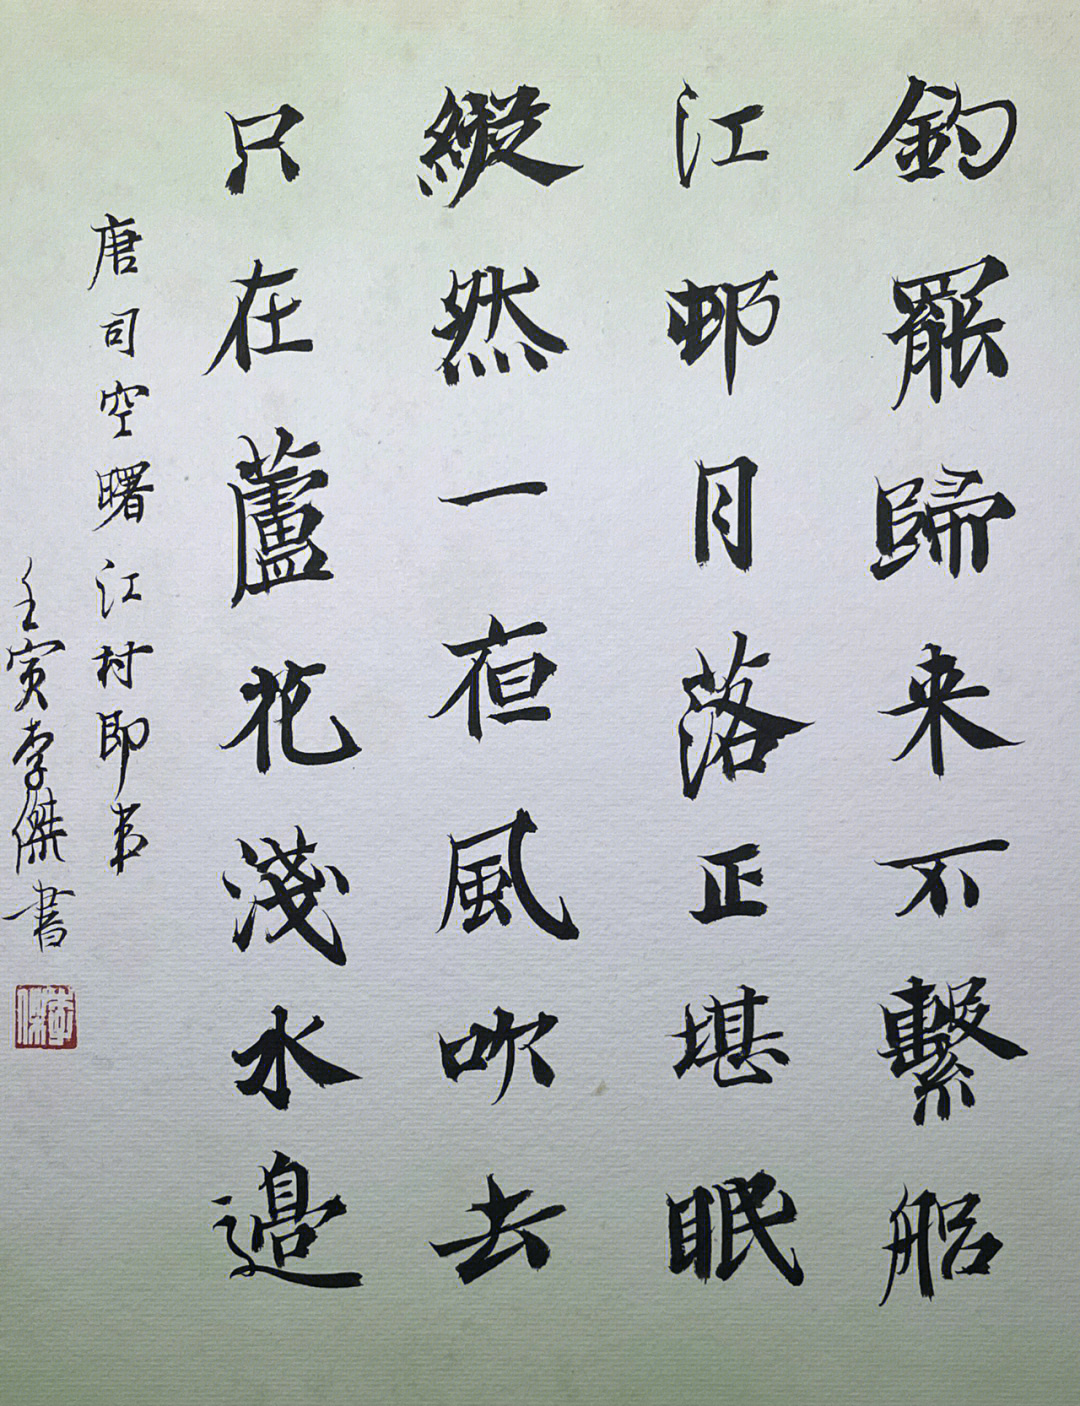 釣罷歸来不繫船
江邨月落正堪眠
縱然一夜風吹去
只在蘆花淺水邊
唐司空曙江村即事
壬寅李傑書
李傑